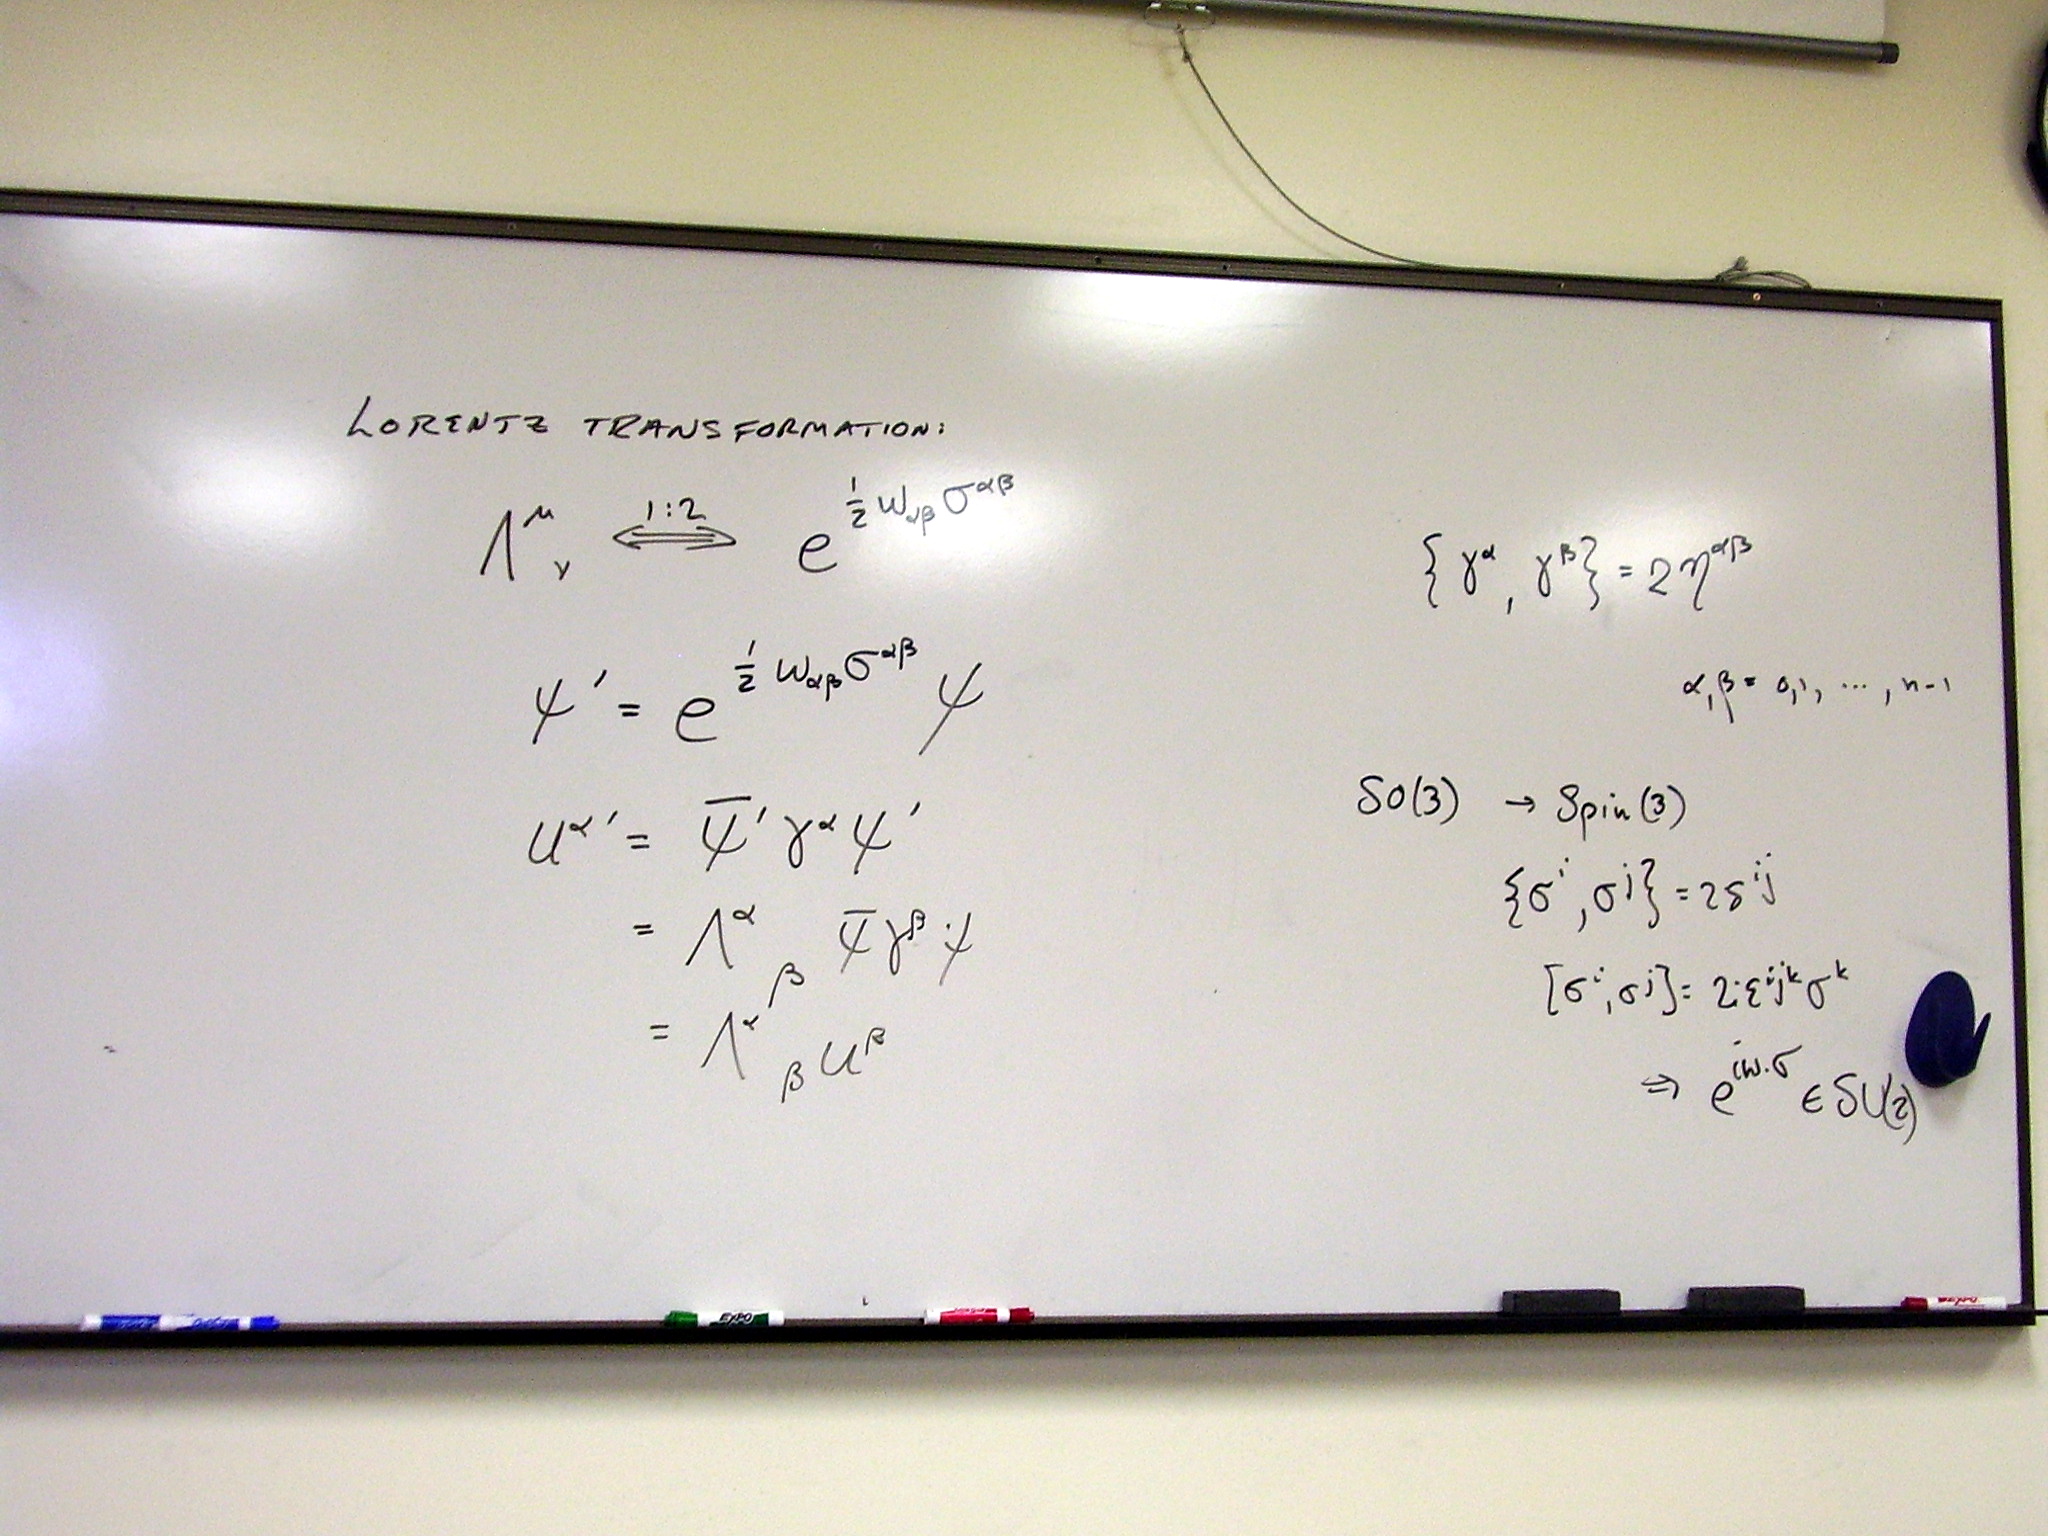 LORENTZ TRANSFORMATION:
Λ^μ_ν ⟺ 1:2 e^{½ ω_{αβ} σ^{αβ}}
ψ' = e^{½ ω_{αβ} σ^{αβ}} ψ
u^α' = ψ̄' γ^α ψ'
= Λ^α_β ψ̄ γ^β ψ
= Λ^α_β u^β
{γ^α, γ^β} = 2η^{αβ}
α, β = 0, 1, ..., n-1
SO(3) → Spin(3)
{σ^i, σ^j} = 2δ^{ij}
[σ^i, σ^j] = 2iε^{ijk} σ^k
⇒ e^{iω·σ} ∈ SU(2)
EXPO